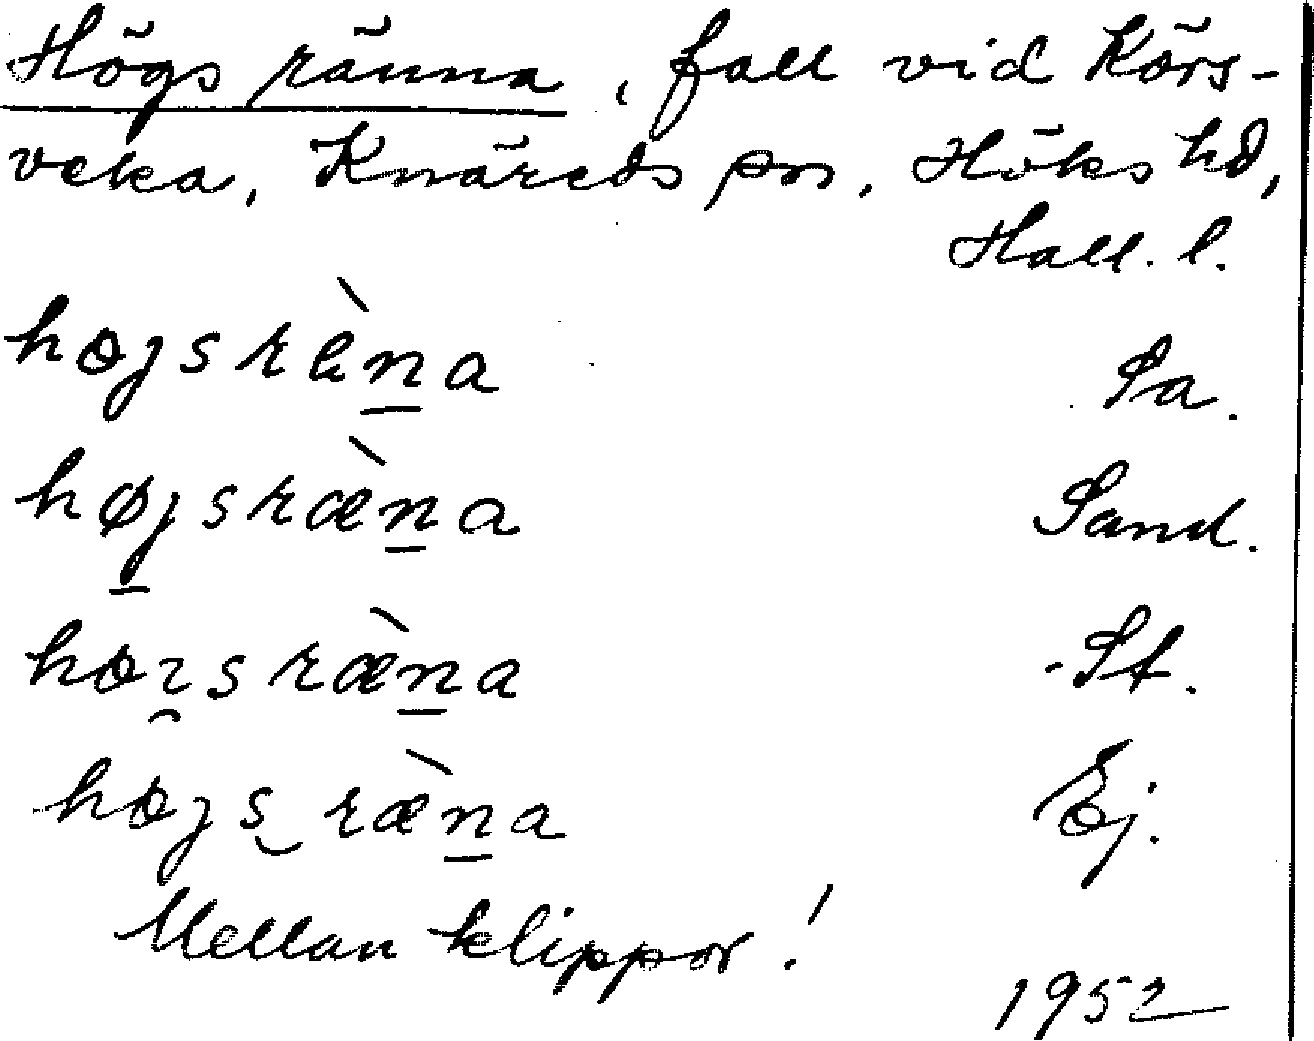 Högs ränna, fall vid Körs-
veka, Knäreds sn, Höks hd,
Hall. l.
højsrèna Sa.
højsræ̀na Sand.
høısræ̀na St.
højs ræ̀na Ej.
Mellan klippor!
1952